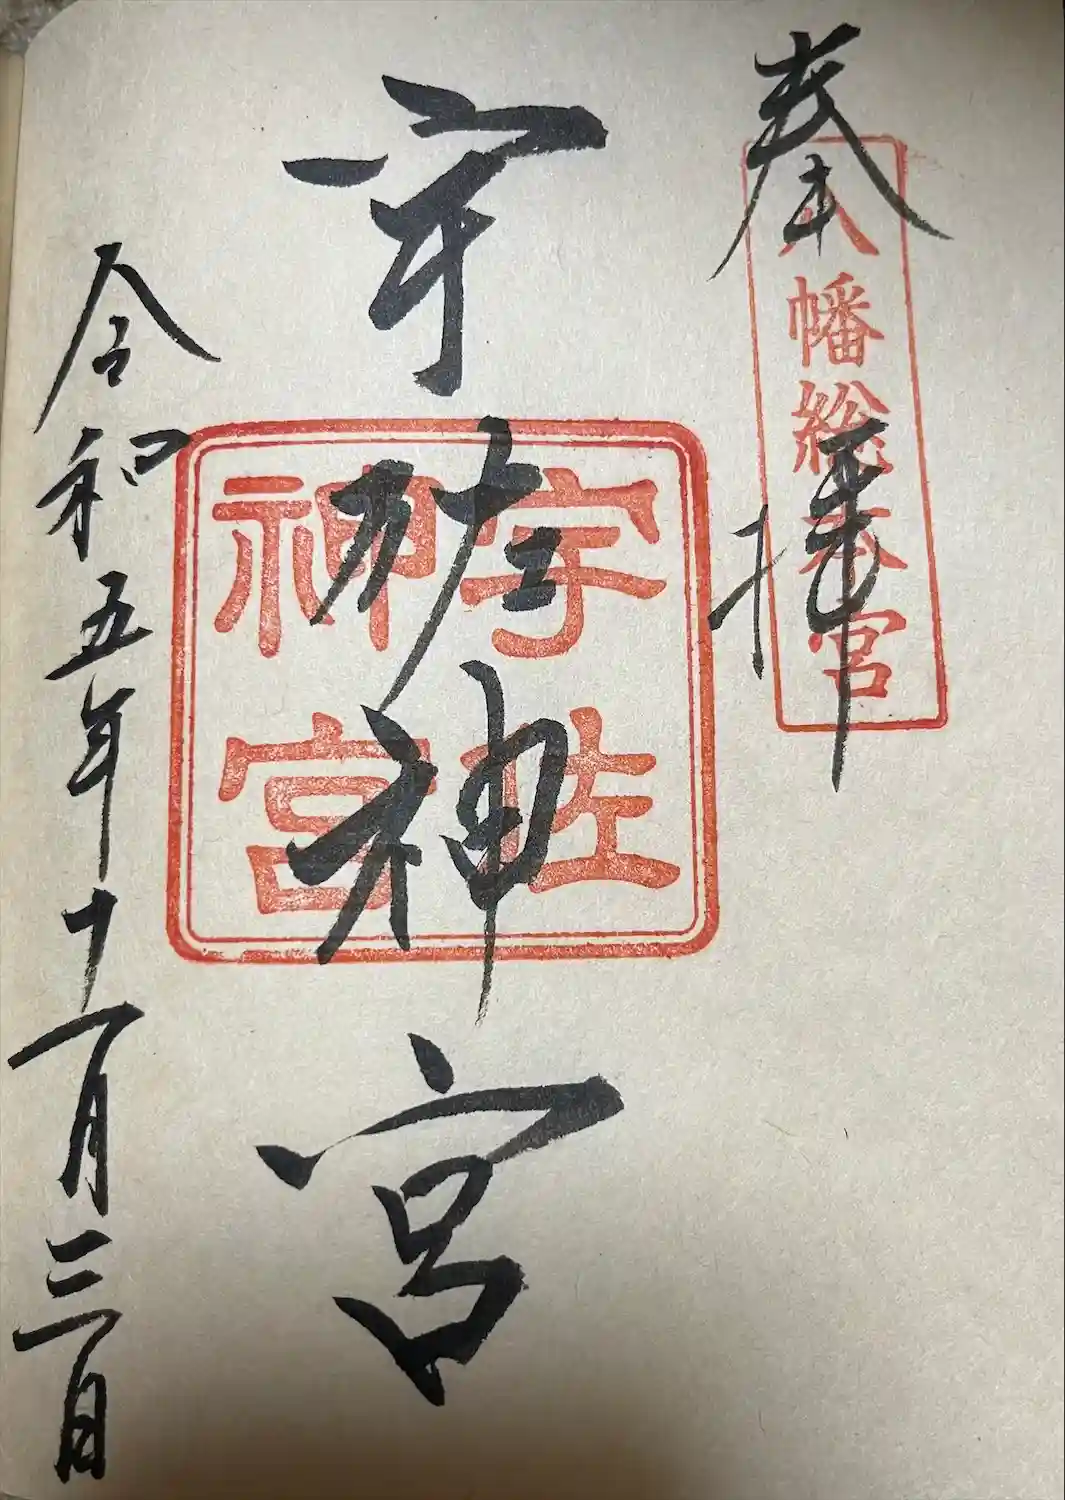 奉拝
八幡総本宮
宇佐神宮
宇佐
神宮
令和五年十一月三日